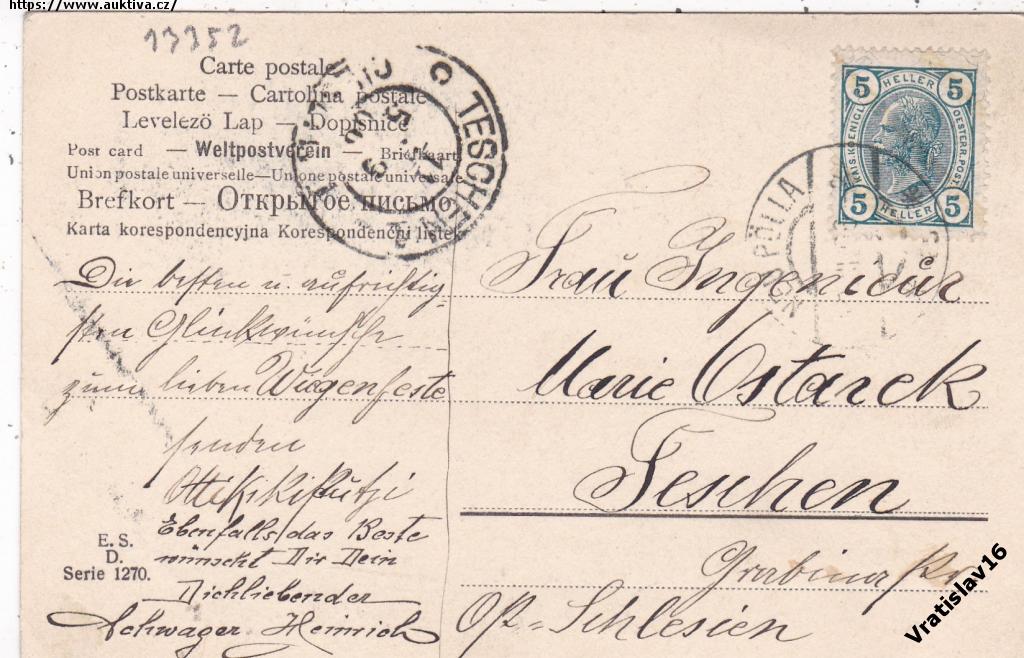 https://www.auktiva.cz/
13352
Carte postale
Postkarte — Cartolina postale
Levelező Lap — Dopisnice
Post card — Weltpostverein — Briefkaart
Union postale universelle — Unione postale universale
Brefkort — Открытое письмо
Karta korespondencyjna Korespondenčni listek
TESCHEN
5 HELLER 5
KAIS. KOENIGL. OESTERR. POST.
5 HELLER 5
PÖLLA
Die besten u. aufrichtig-
sten Glückwünsche
zum lieben Wiegenfeste
senden
Ebenfalls das Beste
wünscht Dir Dein
Dichliebender
Schwager Heinrich
E. S.
D.
Serie 1270.
Frau Ingenieur
Marie Ostarek
Teschen
Grabina
Öst-Schlesien
Vratislav16